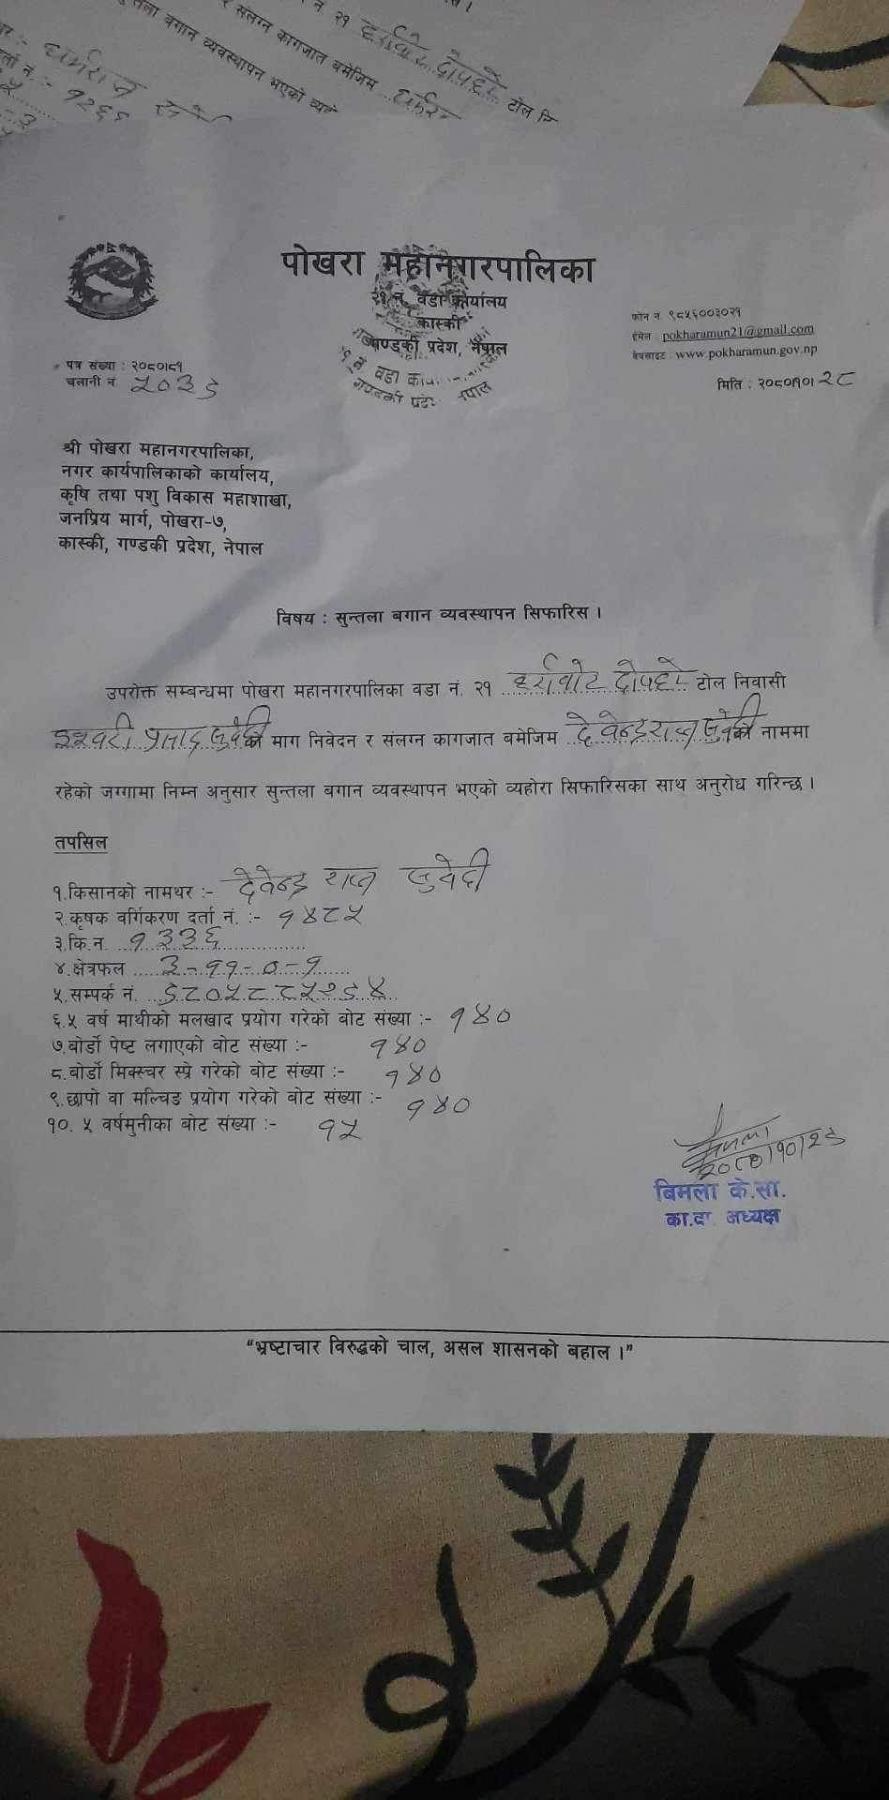 पोखरा महानगरपालिका
२१ नं. वडा कार्यालय
कास्की
गण्डकी प्रदेश, नेपाल
फोन नं ९८५६००३०२१
ईमेल pokharamun21@gmail.com
वेबसाइट : www.pokharamun.gov.np
पत्र संख्या : २०८०।८१
चलानी नं २०३९
मिति : २०८०।१०।२८
श्री पोखरा महानगरपालिका,
नगर कार्यपालिकाको कार्यालय,
कृषि तथा पशु विकास महाशाखा,
जनप्रिय मार्ग, पोखरा-७,
कास्की, गण्डकी प्रदेश, नेपाल
विषय : सुन्तला बगान व्यवस्थापन सिफारिस ।
उपरोक्त सम्बन्धमा पोखरा महानगरपालिका वडा नं. २१ टोल निवासी
इश्वरी प्रसाद सुवेदीको माग निवेदन र संलग्न कागजात बमेजिम देवेन्द्रराज सुवेदीको नाममा
रहेको जग्गामा निम्न अनुसार सुन्तला बगान व्यवस्थापन भएको व्यहोरा सिफारिसका साथ अनुरोध गरिन्छ ।
तपसिल
१.किसानको नामथर :- देवेन्द्र राज सुवेदी
२.कृषक वर्गिकरण दर्ता नं. :- १४८५
३.कि.न. १३३६
४.क्षेत्रफल ३-११-०-१
५.सम्पर्क नं. ९८०५८८५२९४
६.५ वर्ष माथीको मलखाद प्रयोग गरेको बोट संख्या :- १४०
७.बोर्डो पेष्ट लगाएको बोट संख्या :- १४०
८.बोर्डो मिक्स्चर स्प्रे गरेको बोट संख्या :- १४०
९.छापो वा मल्चिङ प्रयोग गरेको बोट संख्या :- १४०
१०. ५ वर्षमुनीका बोट संख्या :- १५
२०८०।१०।२९
बिमला के.सी.
का.वा. अध्यक्ष
"भ्रष्टाचार विरुद्धको चाल, असल शासनको बहाल ।"